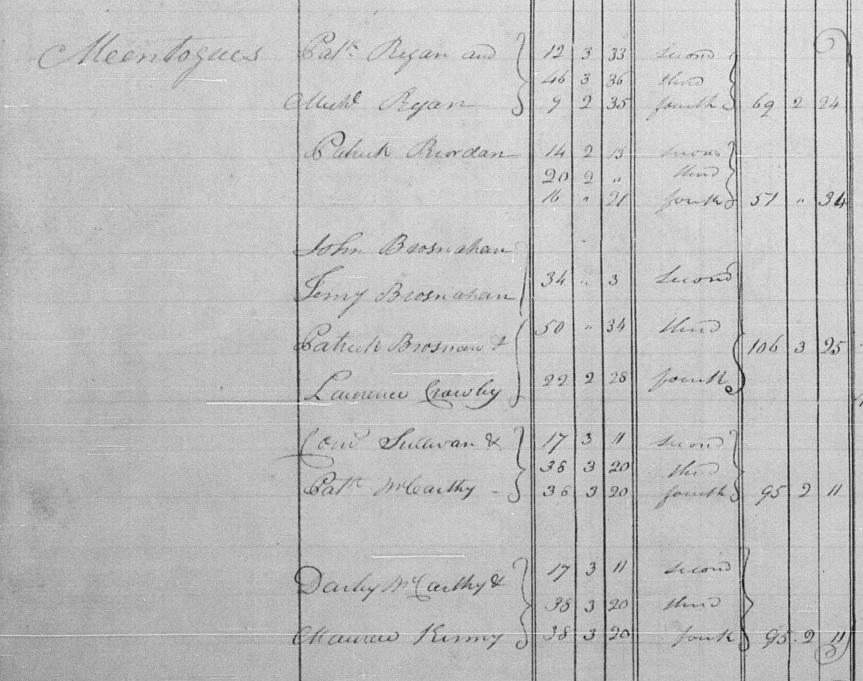 Meentogues Patk Ryan and 12 3 33 second
46 3 36 third
Michl Ryan 9 2 35 fourth 69 2 24
Patrick Riordan 14 2 13 second
20 2 " third
16 " 21 fourth 51 " 34
John Brosnahan
Jerry Brosnahan 34 " 3 second
50 " 34 third
Patrick Brosnan & 106 3 25
Laurence Crowly 22 2 28 fourth
Conr Sullivan & 17 3 11 second
38 3 20 third
Patk McCarthy - 38 3 20 fourth 95 2 11
17 3 11 second
Darby McCarthy &
38 3 20 third
Maurice Kinny 38 3 20 fourth 95 2 11